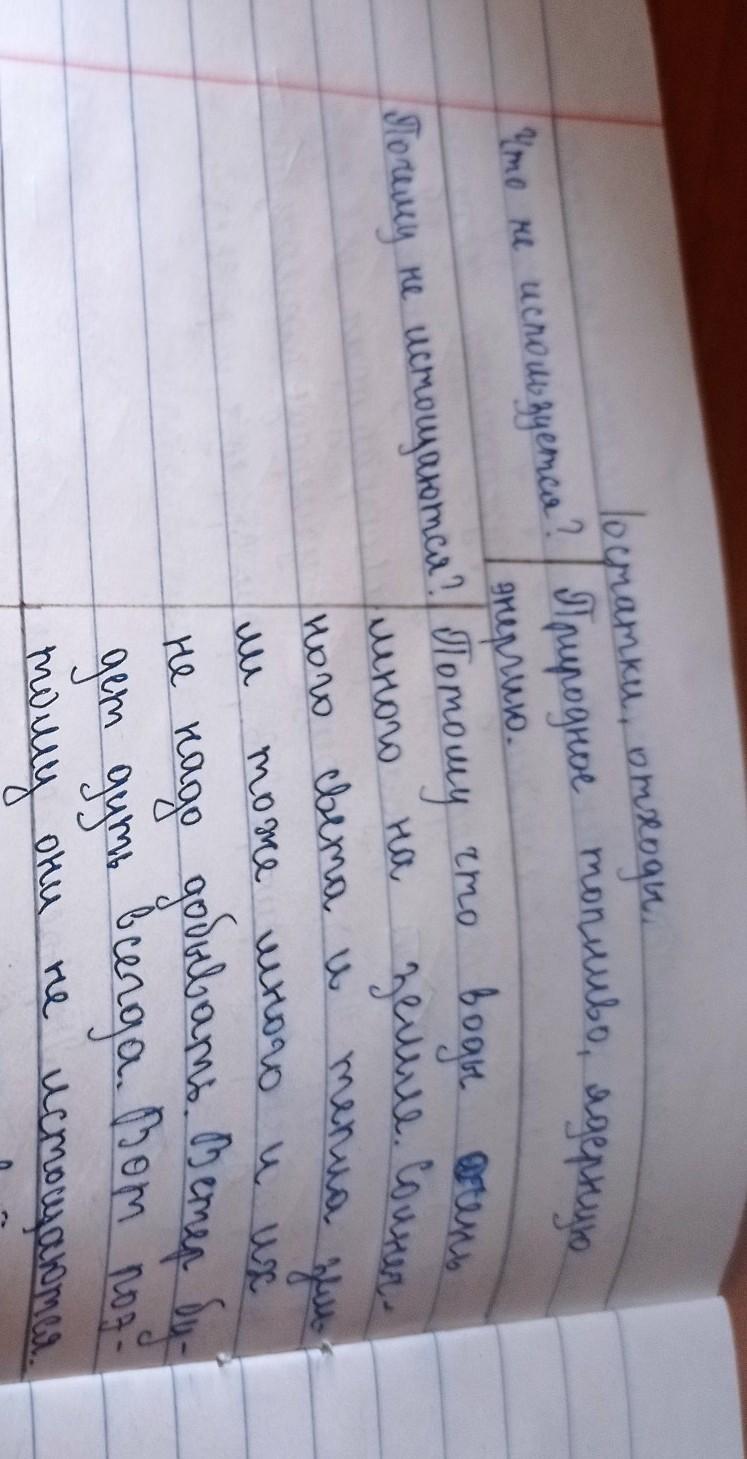 остатки, отходы.
Что не используется? Природное топливо, ядерную
энергию.
Почему не истощаются? Потому что воды очень
много на земле. Солнеч-
ного света и тепла зем
ли тоже много и их
не надо добывать. Ветер бу-
дет дуть всегда. Вот поэ-
тому они не истощаются.